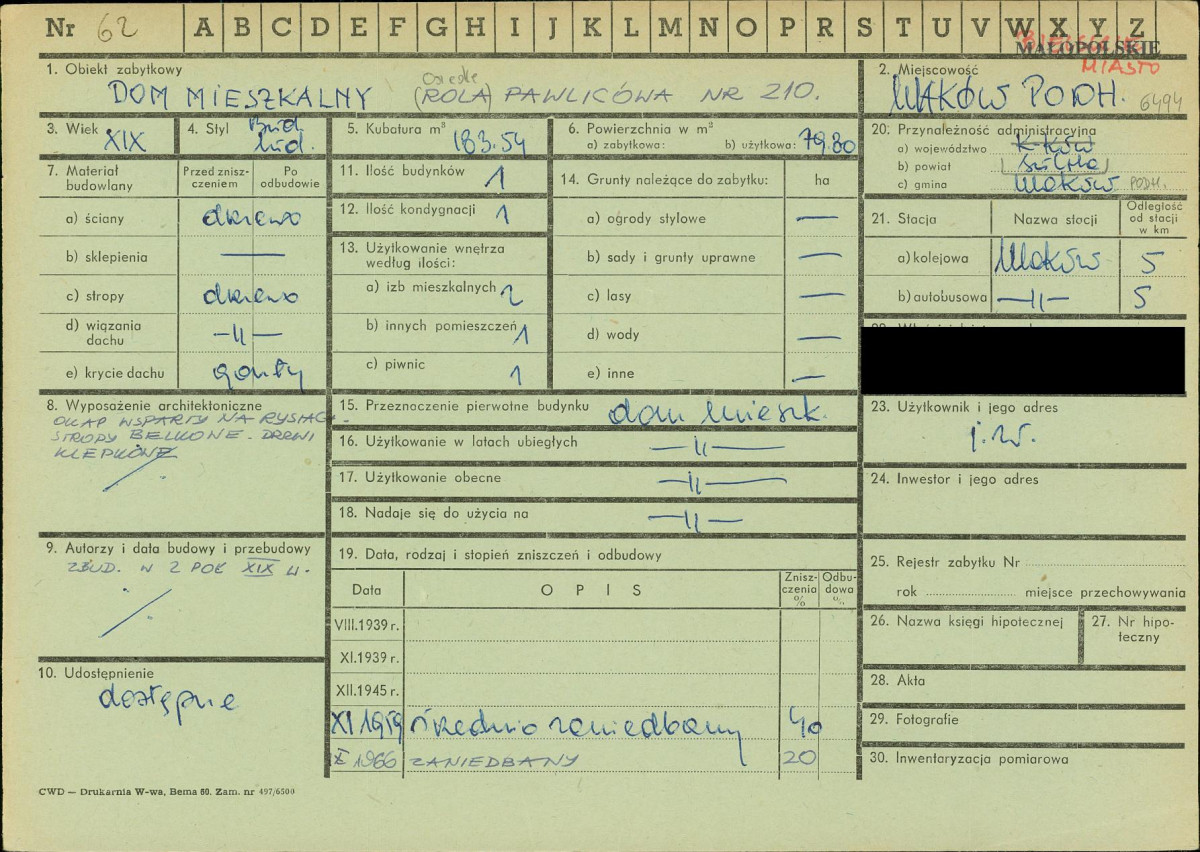 Nr 62 A B C D E F G H I J K L M N O P R S T U V W X Y Z
MAŁOPOLSKIE
MIASTO
1. Obiekt zabytkowy
Osiedle
DOM MIESZKALNY (ROLA) PAWLICÓWA NR 210.
2. Miejscowość
MAKÓW PODH. 6494
3. Wiek
XIX
4. Styl
Bud.
lud.
5. Kubatura m³
183.54
6. Powierzchnia w m²
a) zabytkowa: b) użytkowa: 79.80
20. Przynależność administracyjna
a) województwo K-ków
b) powiat Sucha
c) gmina Maków PODH.
7. Materiał budowlany
Przed zniszczeniem
Po odbudowie
a) ściany drzewo
b) sklepienia —
c) stropy drzewo
d) wiązania dachu —11—
e) krycie dachu gonty
11. Ilość budynków 1
12. Ilość kondygnacji 1
13. Użytkowanie wnętrza według ilości:
a) izb mieszkalnych 2
b) innych pomieszczeń 1
c) piwnic 1
14. Grunty należące do zabytku: ha
a) ogrody stylowe —
b) sady i grunty uprawne —
c) lasy —
d) wody —
e) inne —
21. Stacja Nazwa stacji Odległość od stacji w km
a) kolejowa Maków 5
b) autobusowa —11— 5
8. Wyposażenie architektoniczne
OKAP WSPARTY NA RYSIACH.
STROPY BELKOWE. DRZWI
KLEPKOWE
15. Przeznoczenie pierwotne budynku dom mieszk.
16. Użytkowanie w latach ubiegłych —11—
17. Użytkowanie obecne —11—
18. Nadaje się do użycia na —11—
23. Użytkownik i jego adres
j.w.
24. Inwestor i jego adres
9. Autorzy i data budowy i przebudowy
ZBUD. W 2 POŁ XIX W.
10. Udostępnienie
dostępne
19. Data, rodzaj i stopień zniszczeń i odbudowy
Data OPIS Zniszczenia % Odbudowa %
VIII.1939 r.
XI.1939 r.
XII.1945 r.
XI 1959 średnio zaniedbany 40
X 1966 ZANIEDBANY 20
25. Rejestr zabytku Nr
rok miejsce przechowywania
26. Nazwa księgi hipotecznej
27. Nr hipoteczny
28. Akta
29. Fotografie
30. Inwentaryzacja pomiarowa
CWD — Drukarnia W-wa, Bema 60. Zam. nr 497/6500